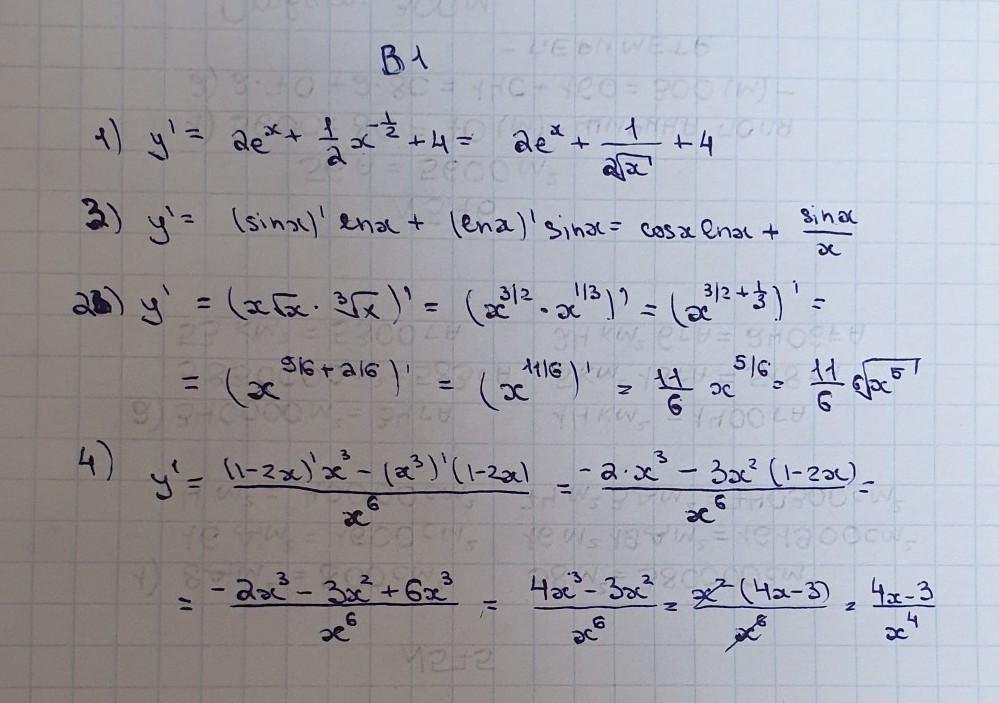 В1
1) y' = 2e^x + 1/2 x^(-1/2) + 4 = 2e^x + 1/(2√x) + 4
3) y' = (sinx)' lnx + (lnx)' sinx = cosx lnx + sinx/x
2) y' = (x√x · ∛x)' = (x^(3/2) · x^(1/3))' = (x^(3/2 + 1/3))' =
= (x^(9/6 + 2/6))' = (x^(11/6))' = 11/6 x^(5/6) = 11/6 ⁶√(x⁵)
4) y' = ((1-2x)' x³ - (x³)' (1-2x))/x⁶ = (-2·x³ - 3x² (1-2x))/x⁶ =
= (-2x³ - 3x² + 6x³)/x⁶ = (4x³ - 3x²)/x⁶ = (x² (4x-3))/x⁶ = (4x-3)/x⁴